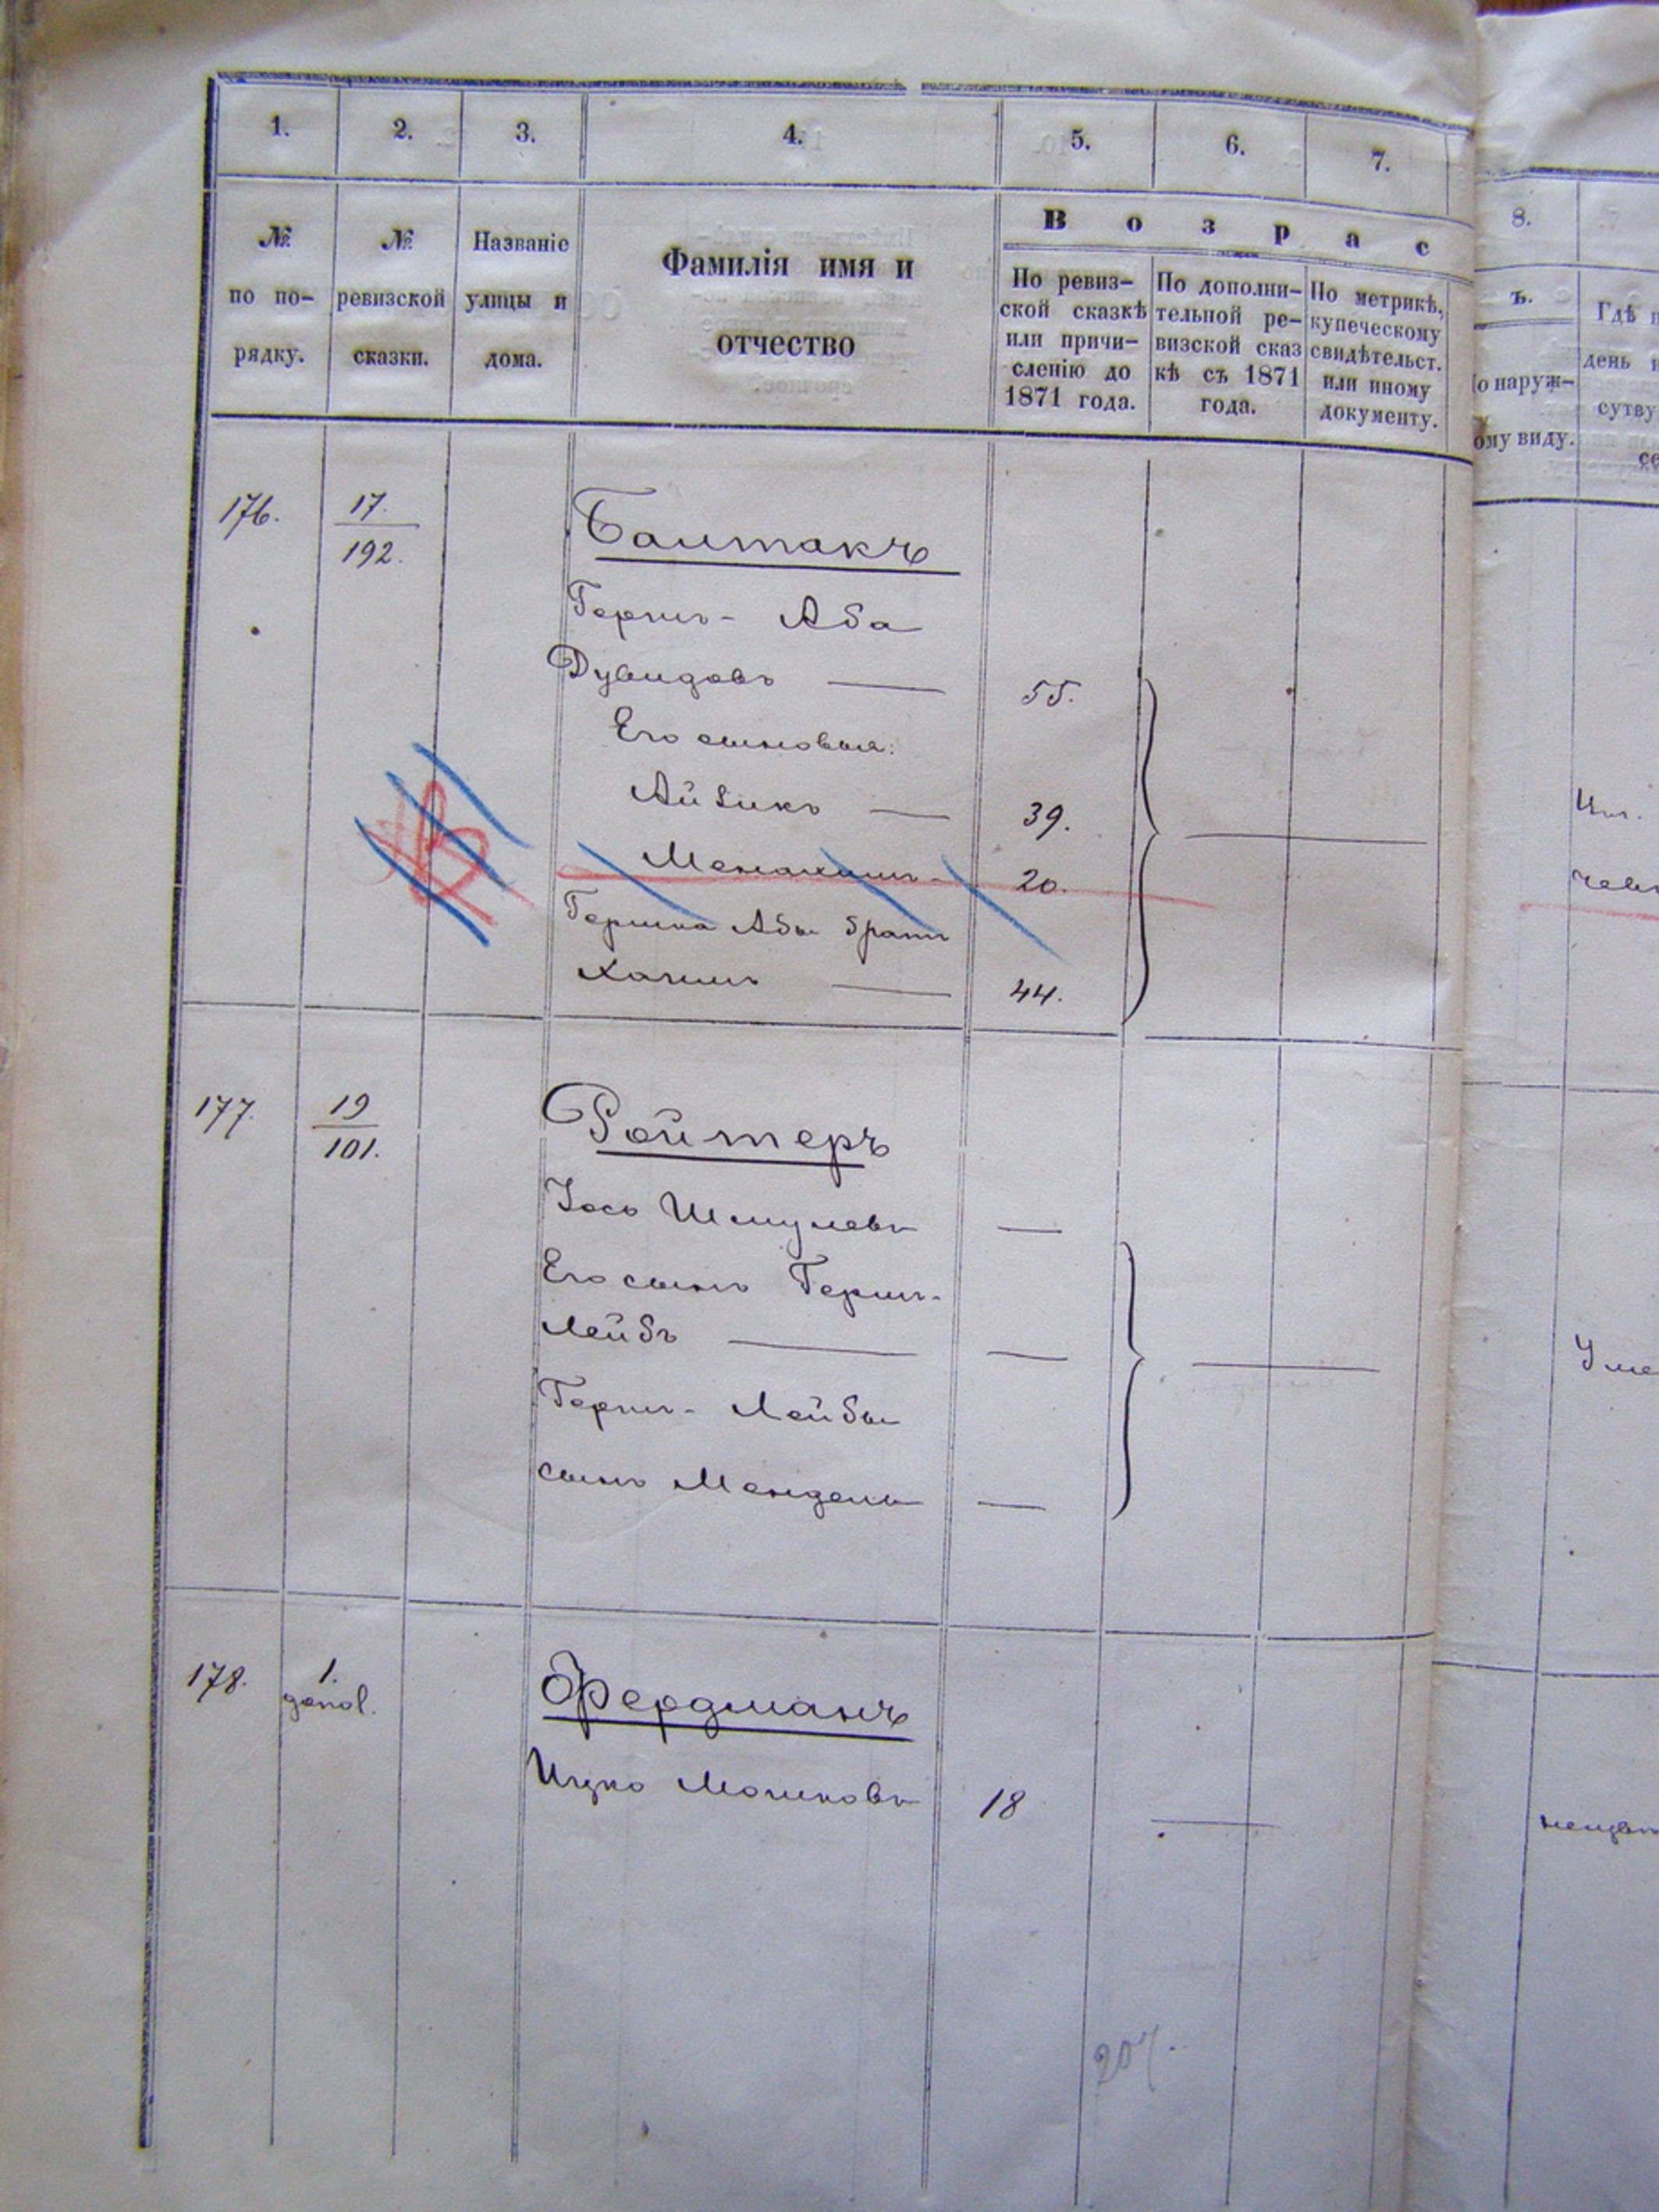 1. 2. 3. 4. 5. 6. 7.
8.
№ по по-рядку.
№ ревизской сказки.
Названіе улицы и дома.
Фамилія имя и отчество
В о з р а с
ъ.
По ревиз-
ской сказкѣ
или причи-
сленію до
1871 года.
По дополни-
тельной ре-
визской сказ
кѣ съ 1871
года.
По метрикѣ,
купеческому
свидѣтельст.
или иному
документу.
о наруж-
ому виду.
Гдѣ
день
сутву
се
176. 17. Балтакъ
192.
Гершъ- Аба
Дувидовъ — 55.
Его сыновья:
Айзикъ — 39.
Менахимъ - 20.
Гершка Абы братъ
Хаимъ — 44.
177. 19 Ройтеръ
101.
Іось Шмулевъ —
Его сынъ Гершъ-
Лейбъ — —
Гершъ- Лейбы
сынъ Мендель —
178. 1. Фердманъ
допол.
Ицко Мошковъ 18
207.